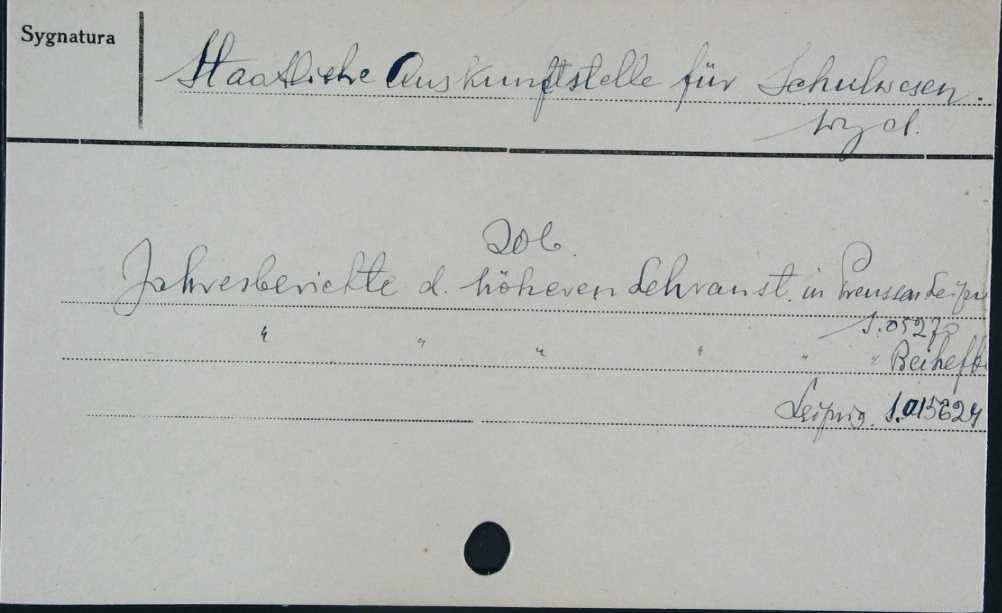 Sygnatura
Staatliche Auskunftstelle für Schulwesen.
wyd.
Zob.
Jahresberichte d. höheren Lehranst. in Preussen Leipzi
S.0527
" " " " " " Beihefte
Leipzig. S.015624